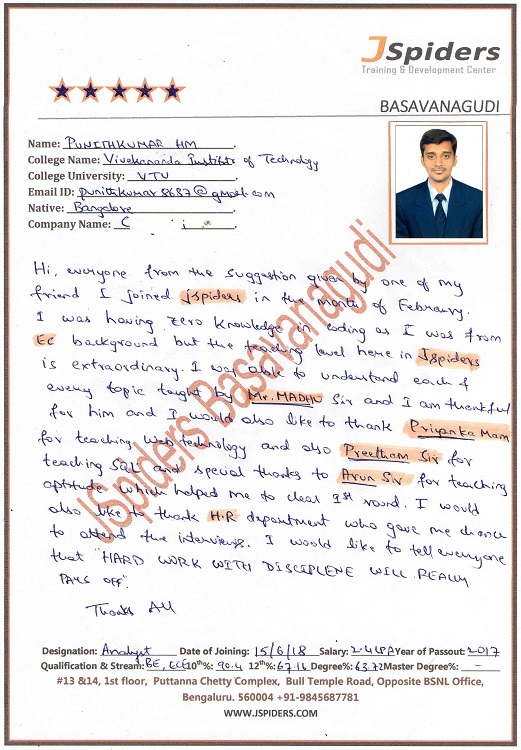 JSpiders
Training & Development Center
BASAVANAGUDI
Name: PUNITHKUMAR HM
College Name: Vivekananda Institute of Technology
College University: VTU
Email ID: punithkumar8687@gmail.com
Native: Bangalore
Company Name: C i
Hi, everyone from the suggestion given by one of my
friend I joined jspiders in the month of February.
I was having zero knowledge in coding as I was from
EC background but the teaching level here in Jspiders
is extraordinary. I was able to understand each &
every topic taught by Mr. MADHU Sir and I am thankful
for him and I would also like to thank Priyanka Mam
for teaching Web technology and also Preetham Sir for
teaching SQL and special thanks to Arun Sir for teaching
aptitude which helped me to clear 1st round. I would
also like to thank H.R department who gave me chance
to attend the interviews. I would like to tell everyone
that "HARD WORK WITH DISCIPLENE WILL REALLY
PAYS OFF".
Thanks All
JSpiders Basavanagudi
Designation: Analyst Date of Joining: 15/6/18 Salary: 2.4LPA Year of Passout: 2017
Qualification & Stream: BE, ECE 10th%: 90.4 12th%: 67.16 Degree%: 63.72 Master Degree%: -
#13 &14, 1st floor, Puttanna Chetty Complex, Bull Temple Road, Opposite BSNL Office,
Bengaluru. 560004 +91-9845687781
WWW.JSPIDERS.COM